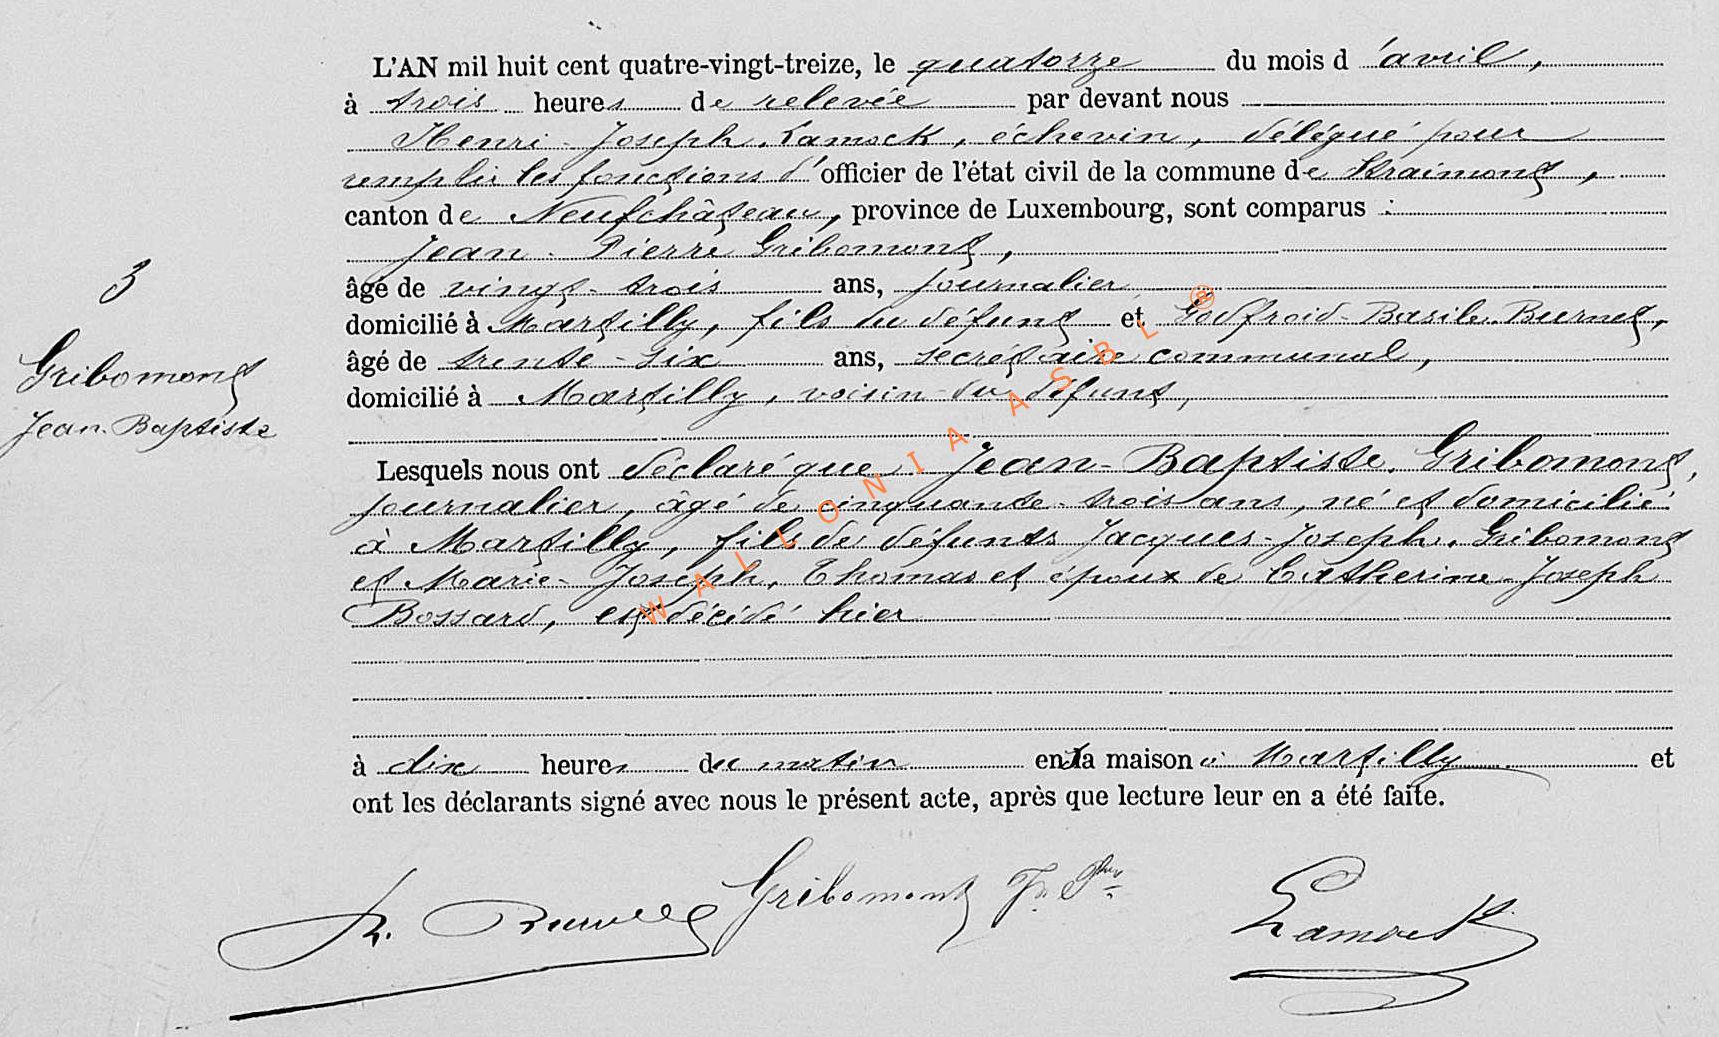 L'AN mil huit cent quatre-vingt-treize, le quatorze du mois d'avril,
à trois heures de relevée par devant nous
Henri-Joseph Lamock, échevin, délégué pour
remplir les fonctions d'officier de l'état civil de la commune de Straimont,
canton de Neufchâteau, province de Luxembourg, sont comparus :
Jean-Pierre Gribomont,
âgé de vingt-trois ans, journalier
domicilié à Martilly, fils du défunt et Godfroid-Basile Burnet,
âgé de trente-six ans, secrétaire communal,
domicilié à Martilly, voisin du défunt,
3
Gribomont
Jean-Baptiste
Lesquels nous ont déclaré que Jean-Baptiste Gribomont,
journalier, âgé de cinquante-trois ans, né et domicilié
à Martilly, fils de défunts Jacques-Joseph Gribomont
et Marie-Joseph Thomas et époux de Catherine-Joseph
Bossard, est décédé hier
à dix heures du matin en la maison à Martilly et
ont les déclarants signé avec nous le présent acte, après que lecture leur en a été faite.
Burnet Gribomont Jn Prre Lamock
WALLONIA ASBL ®